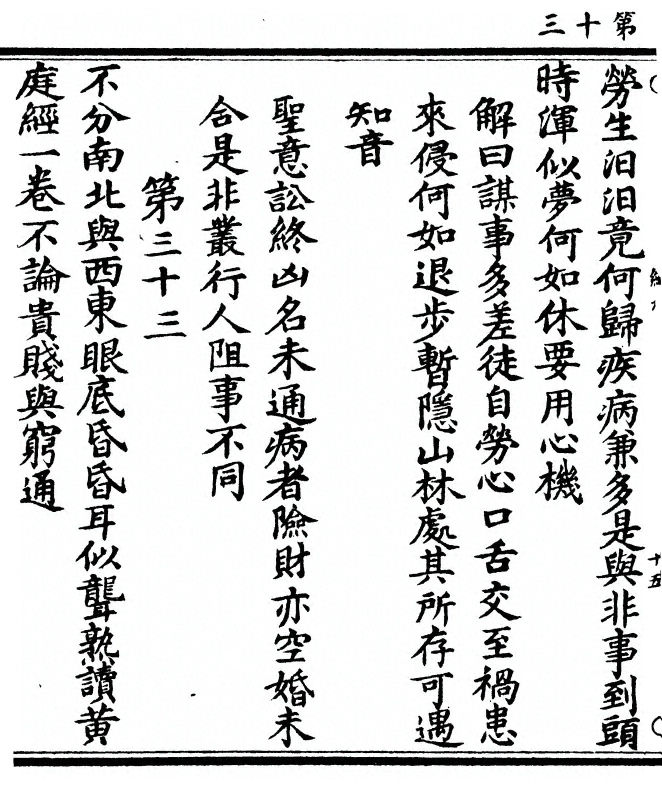 第十三
勞生汨汨竟何歸疾病兼多是與非事到頭
時渾似夢何如休要用心機
解曰謀事多差徒自勞心口舌交至禍患
來侵何如退步暫隱山林處其所存可遇
知音
聖意訟終凶名未通病者險財亦空婚未
合是非叢行人阻事不同
第三十三
不分南北與西東眼底昏昏耳似聾熟讀黃
庭經一卷不論貴賤與窮通
十五